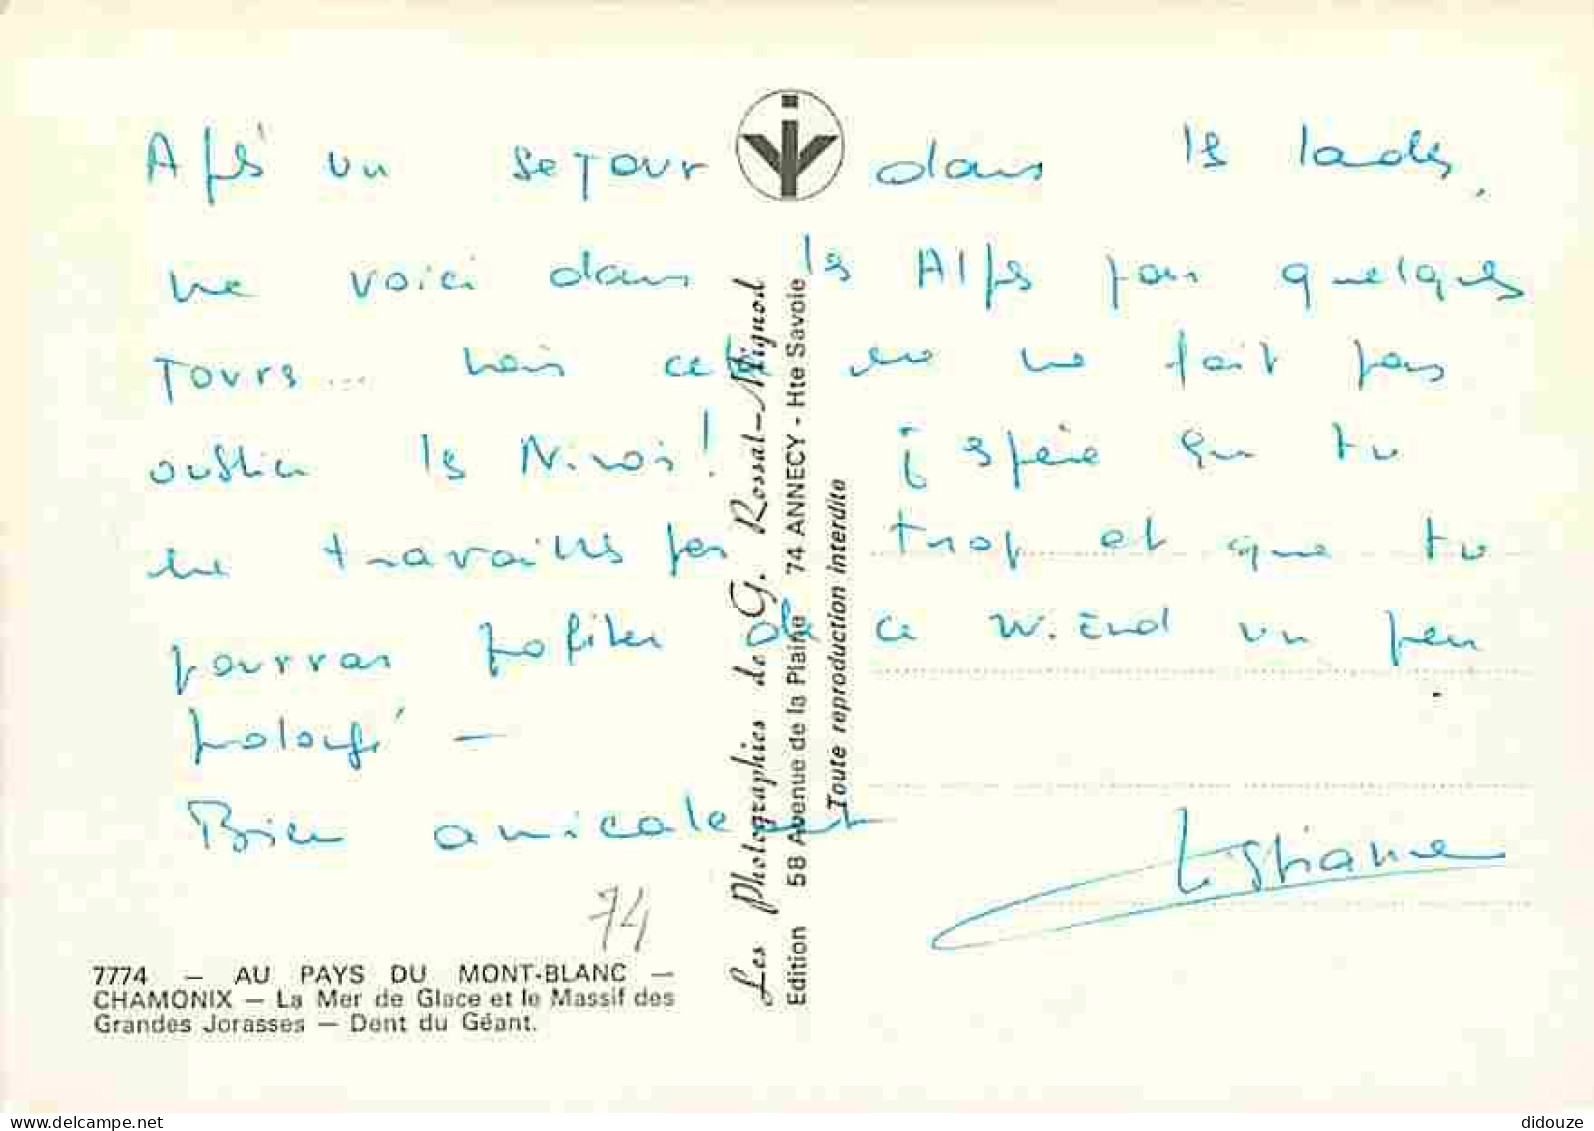 Après un sejour dans les landes,
me voici dans les Alpes pour quelques
Jours... mais cela ne me fait pas
oublier les Nimois! j'espère que tu
ne travailles pas trop et que tu
pourras profiter de ce W.End un peu
prolongé —
Bien amicalement
74
7774 — AU PAYS DU MONT-BLANC —
CHAMONIX — La Mer de Glace et le Massif des
Grandes Jorasses — Dent du Géant.
Les Photographies de G. Rossat-Mignod
Edition 58 Avenue de la Plaine 74 ANNECY - Hte Savoie
Toute reproduction interdite
didouze